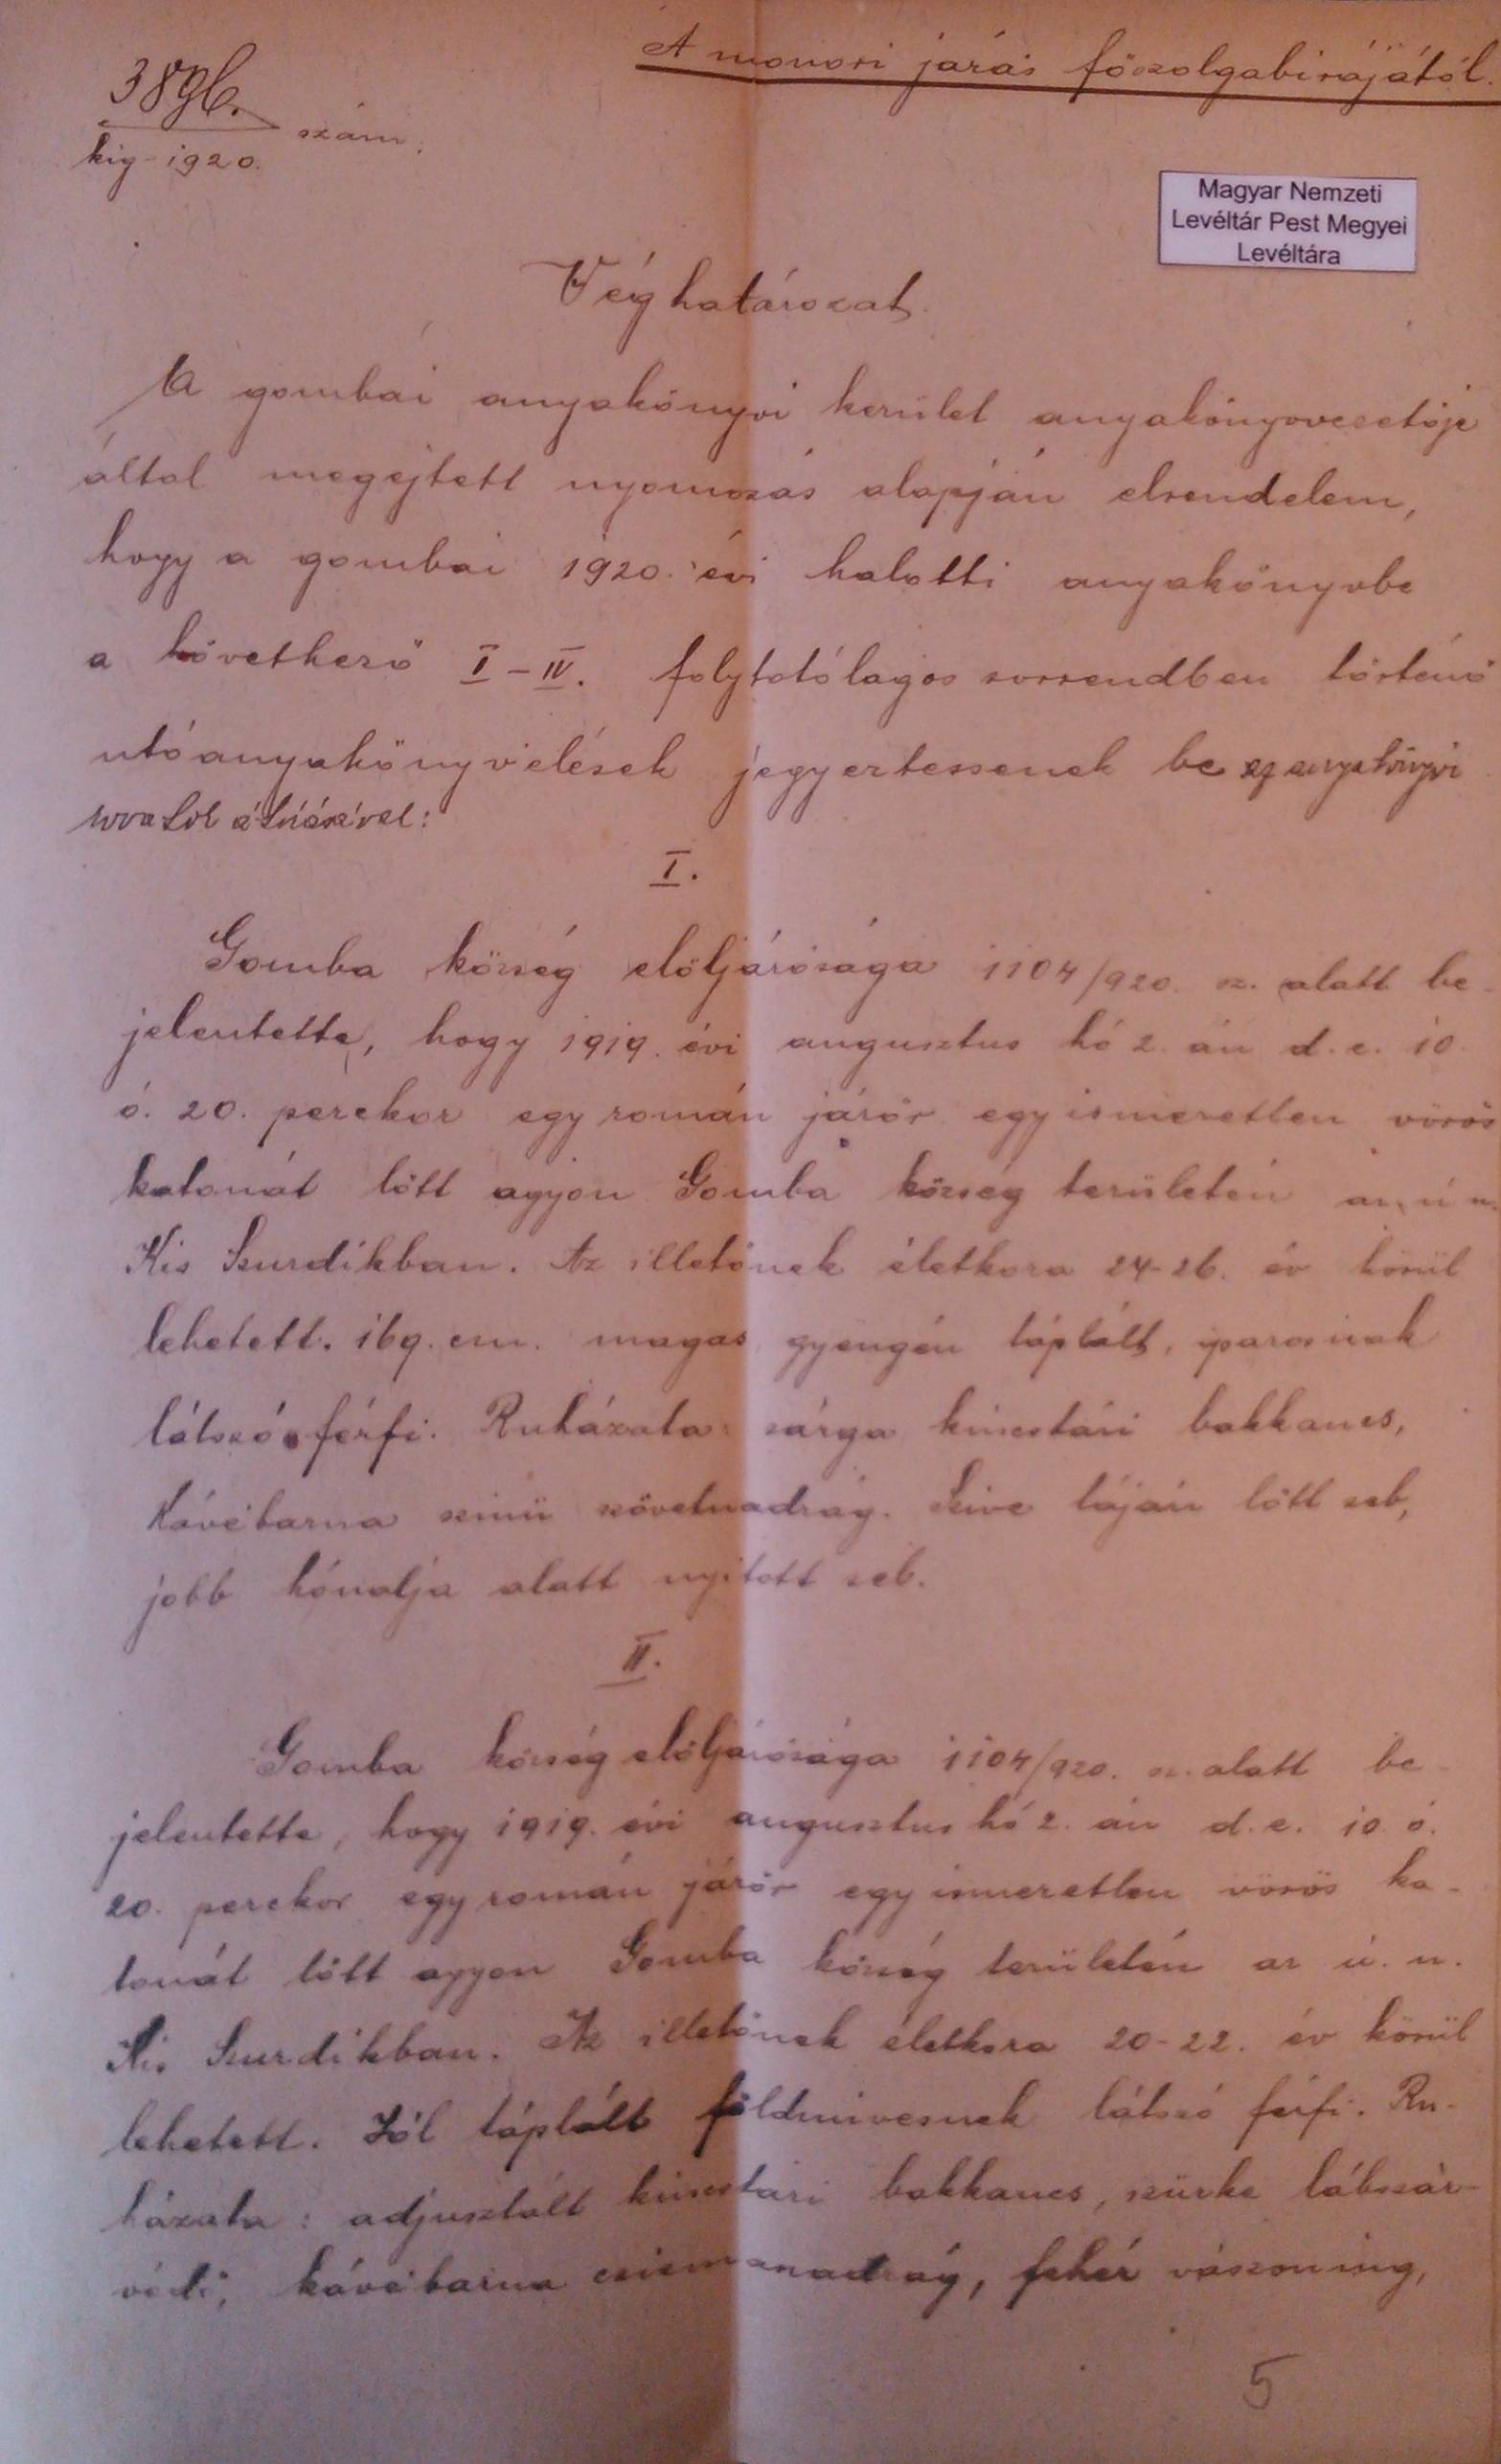 A monori járás főszolgabirájától.
3896.
kig-1920. szám.
Magyar Nemzeti
Levéltár Pest Megyei
Levéltára
Véghatározat.
A gombai anyakönyvi kerület anyakönyvvezetője
által megejtett nyomozás alapján elrendelem,
hogy a gombai 1920. évi halotti anyakönyvbe
a következő I-IV. folytatólagos sorrendben történő
utóanyakönyvelések jegyeztessenek be az anyakönyvi
rovatok áthúzásával:
I.
Gomba község elöljárósága 1104/920. sz. alatt be-
jelentette, hogy 1919. évi augusztus hó 2. án d. e. 10
ó. 20. perckor egy román járőr egy ismeretlen vörös
katonát lőtt agyon Gomba község területén az ú n.
Kis Szurdikban. Az illetőnek életkora 24-26. év körül
lehetett. 169. cm. magas gyengén táplált, iparosnak
látszó férfi. Ruházata: sárga kincstári bakkancs,
Kávébarna szinü szövetnadrág. Szive táján lőtt seb,
jobb hónalja alatt nyitott seb.
II.
Gomba község elöljárósága 1104/920. sz. alatt be-
jelentette, hogy 1919. évi augusztus hó 2. án d. e. 10. ó.
20. perckor egy román járőr egy ismeretlen vörös ka-
tonát lőtt agyon Gomba község területén az ú. n.
Kis Szurdikban. Az illetőnek életkora 20-22. év körül
lehetett. Jól táplált földmivesnek látszó férfi. Ru-
házata: adjusztált kincstári bakkancs, szürke lábszár-
védő, kávébarna nadrág, fehér vászoning,
5